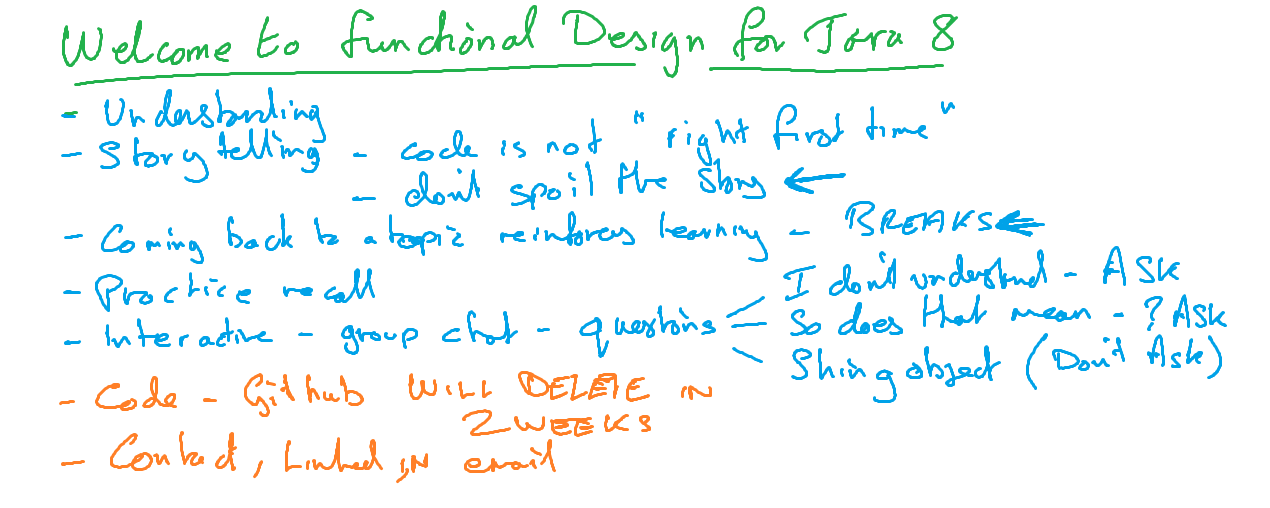 Welcome to functional Design for Java 8
- Understanding
- Story telling - code is not "right first time"
- don't spoil the story
- Coming back to a topic reinforces learning - BREAKS
- Practice recall
- Interactive - group chat - questions
I don't understand - ASK
So does that mean - ? ASK
Shiny object (Don't Ask)
- Code - Github WILL DELETE IN
2 WEEKS
- Contact, Linked IN email